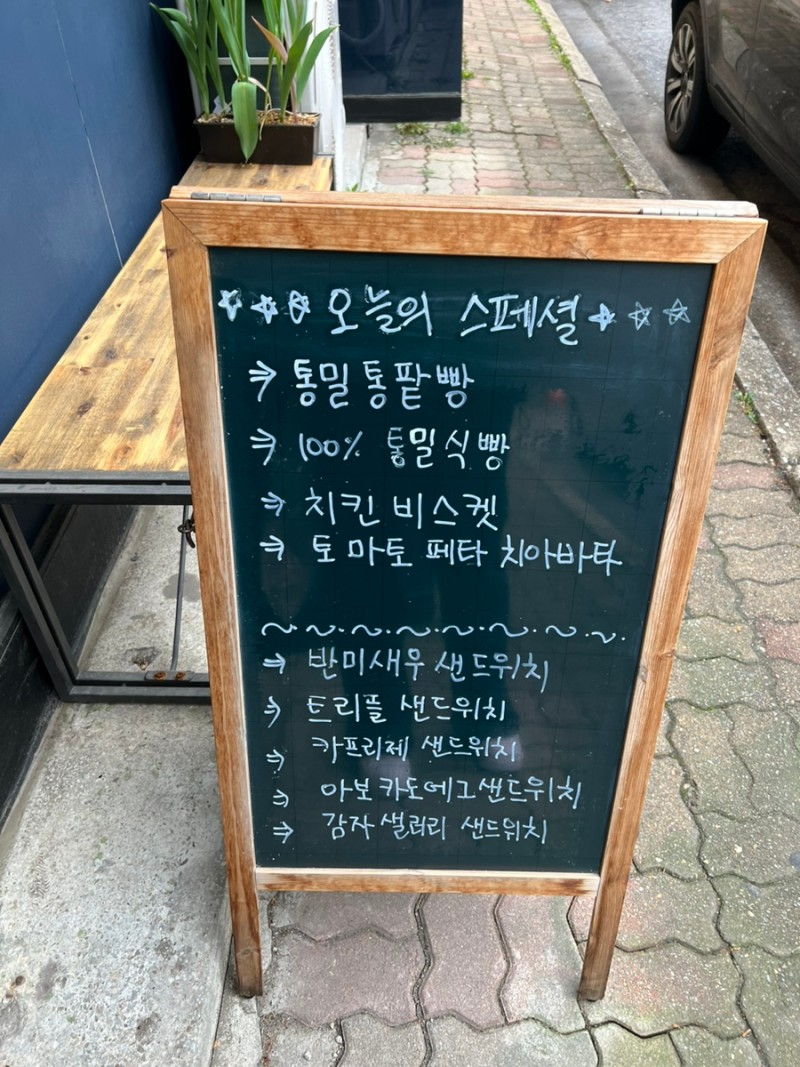 ☆☆☆ 오늘의 스페셜 ☆☆☆
⇒ 통밀통팥빵
⇒ 100% 통밀식빵
⇒ 치킨비스켓
⇒ 토마토 페타 치아바타
~.~.~.~.~.~.~.~.
⇒ 반미새우 샌드위치
⇒ 트리플 샌드위치
⇒ 카프리제 샌드위치
⇒ 아보카도에그샌드위치
⇒ 감자샐러리 샌드위치